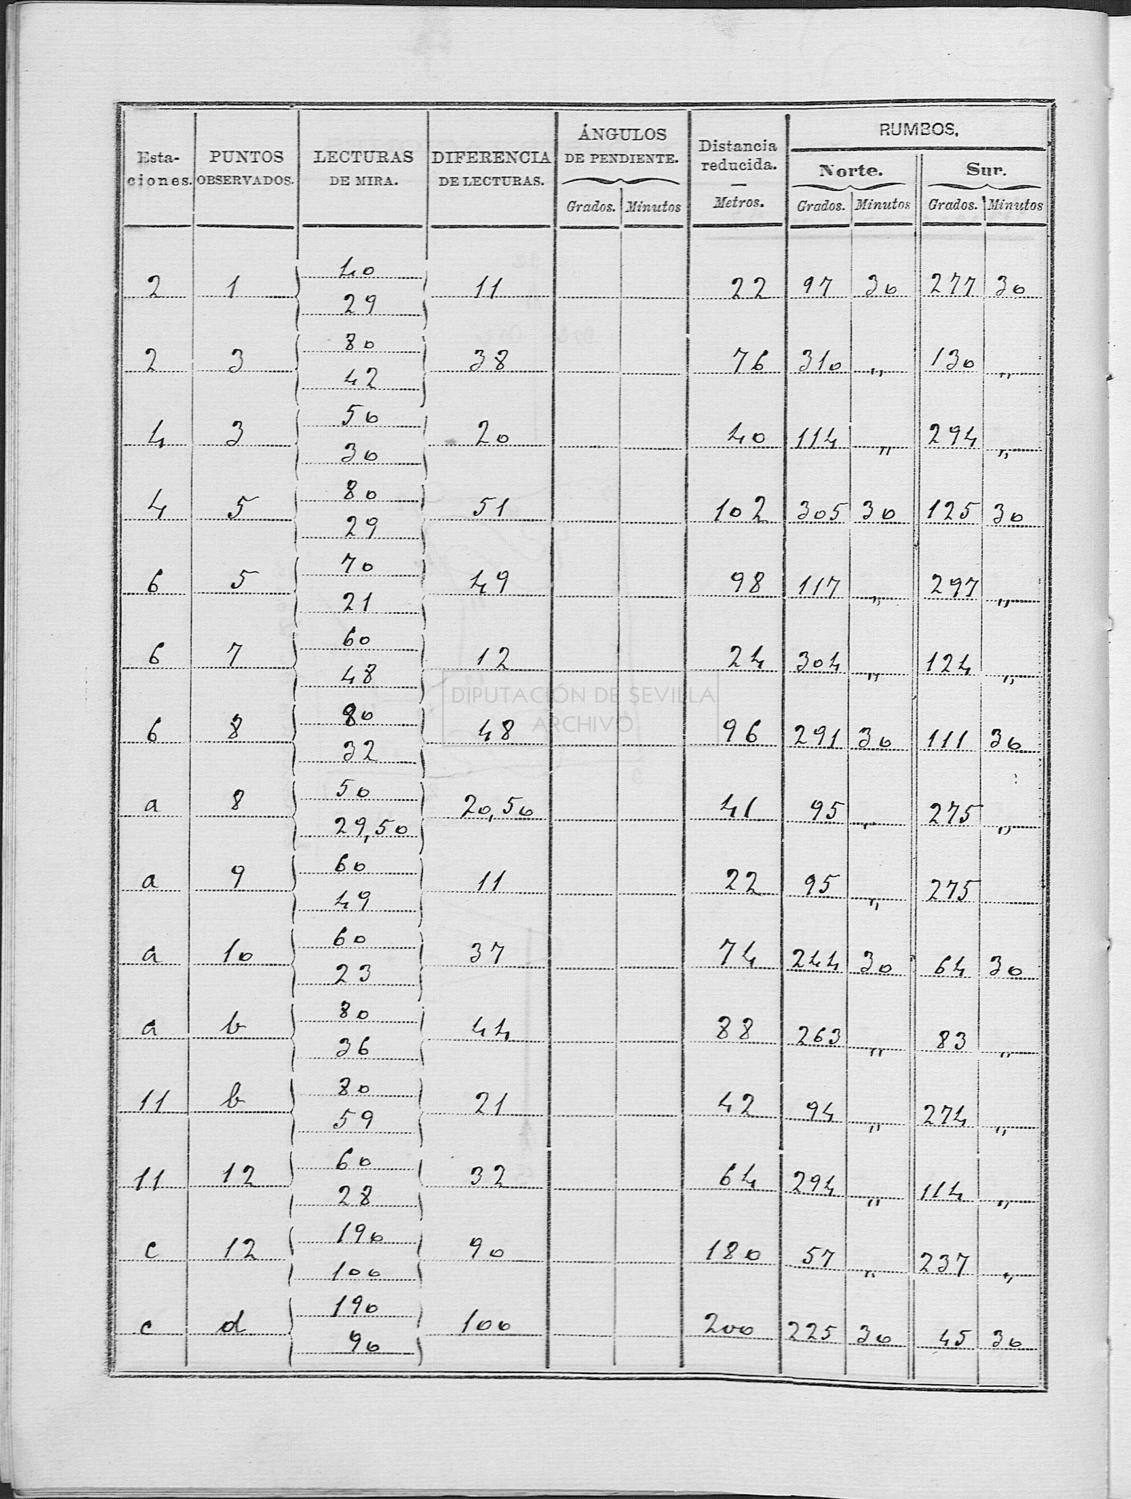 Esta-ciones. | PUNTOS OBSERVADOS. | LECTURAS DE MIRA. | DIFERENCIA DE LECTURAS. | ÁNGULOS DE PENDIENTE. | Distancia reducida. — Metros. | RUMBOS.
Norte. | Sur.
Grados. | Minutos | Grados. | Minutos | Grados. | Minutos
2 | 1 | 40 29 | 11 | 22 | 97 | 30 | 277 | 30
2 | 3 | 80 42 | 38 | 76 | 310 | ,, | 130 | ,,
4 | 3 | 50 30 | 20 | 40 | 114 | ,, | 294 | ,,
4 | 5 | 80 29 | 51 | 102 | 305 | 30 | 125 | 30
6 | 5 | 70 21 | 49 | 98 | 117 | ,, | 297 | ,,
6 | 7 | 60 48 | 12 | 24 | 304 | ,, | 124 | ,,
DIPUTACIÓN DE SEVILLA
ARCHIVO
6 | 8 | 80 32 | 48 | 96 | 291 | 30 | 111 | 30
a | 8 | 50 29,50 | 20,50 | 41 | 95 | ,, | 275 | ,,
a | 9 | 60 49 | 11 | 22 | 95 | ,, | 275
a | 10 | 60 23 | 37 | 74 | 244 | 30 | 64 | 30
a | b | 80 36 | 44 | 88 | 263 | ,, | 83 | ,,
11 | b | 80 59 | 21 | 42 | 94 | ,, | 274 | ,,
11 | 12 | 60 28 | 32 | 64 | 294 | ,, | 114 | ,,
c | 12 | 190 100 | 90 | 180 | 57 | ,, | 237 | ,,
c | d | 190 90 | 100 | 200 | 225 | 30 | 45 | 30